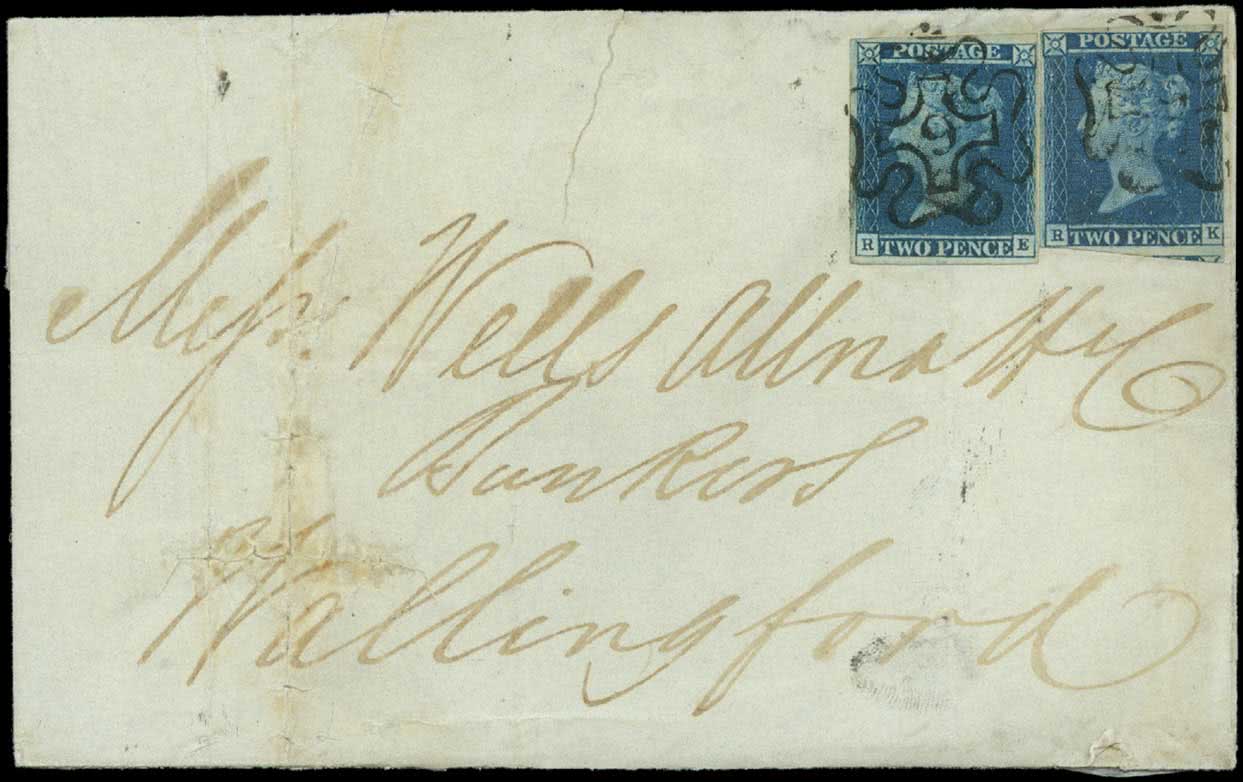 POSTAGE POSTAGE
9
R TWO PENCE E R TWO PENCE K
Messrs. Wells Allnatt & Co
Bankers
Wallingford